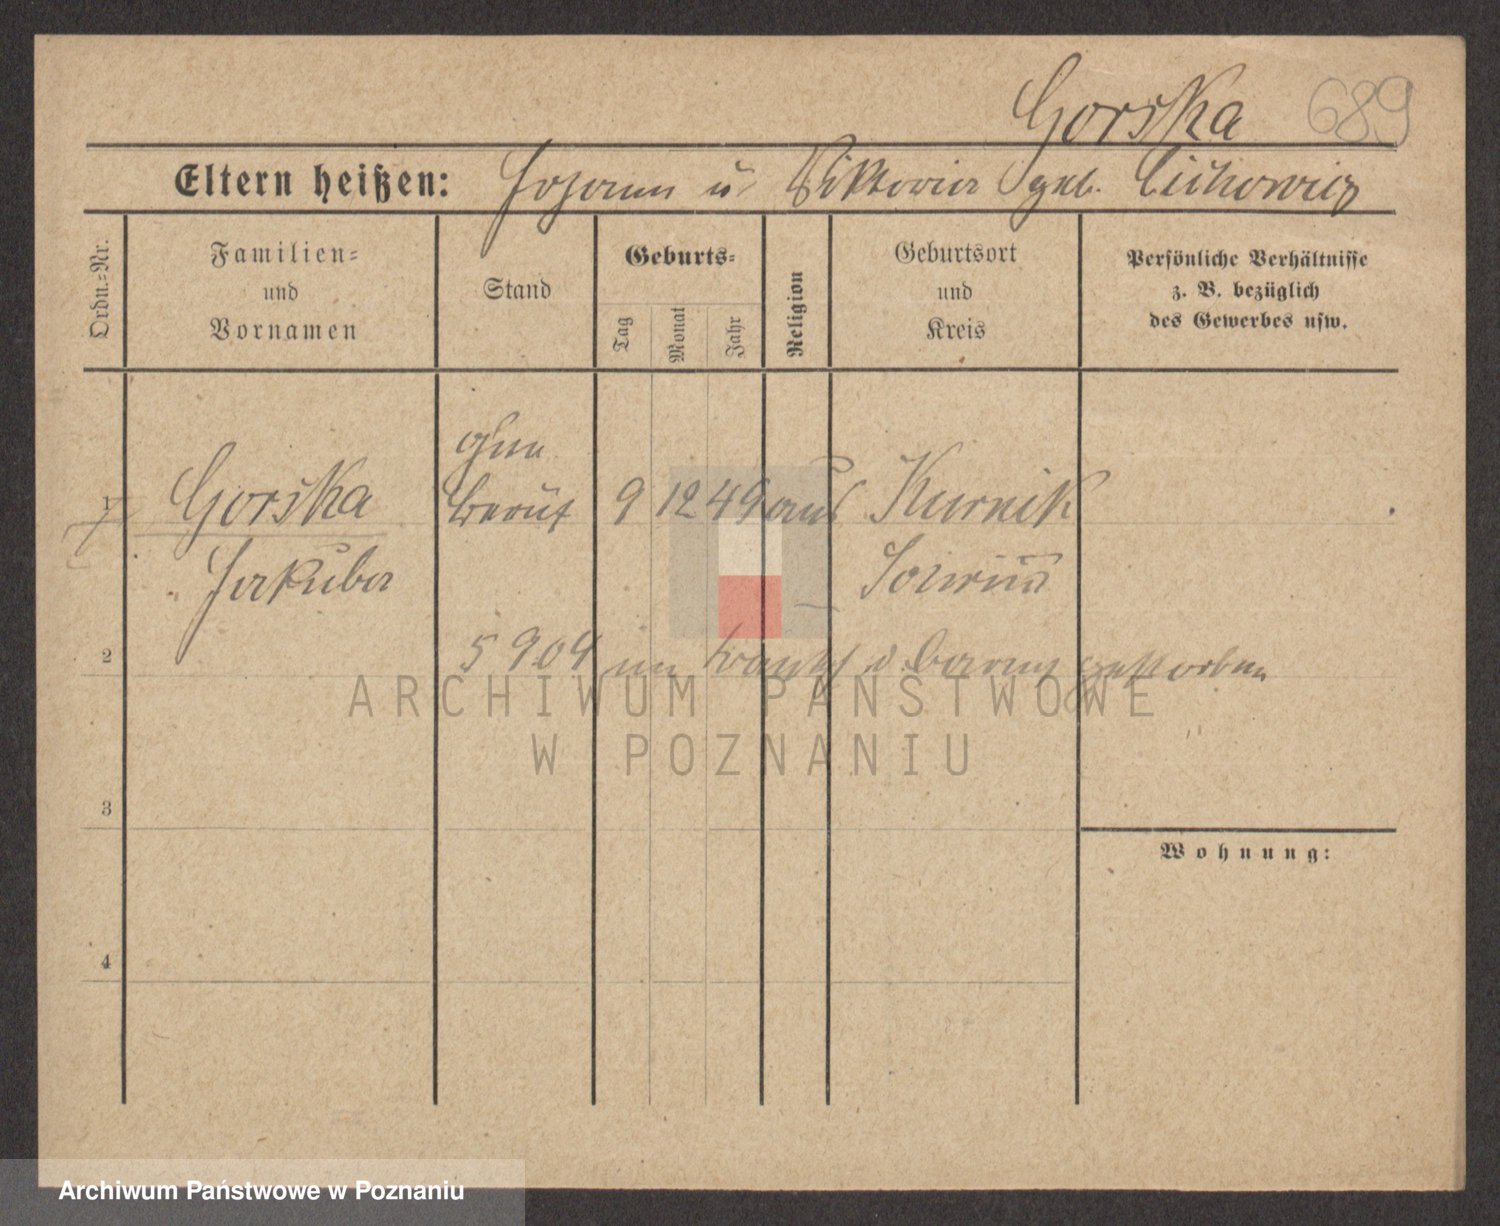 Gorska 689
Eltern heißen: Johann u Viktoria geb. Cichowicz
Ordn.-Nr.
Familien-
und
Vornamen
Stand
Geburts-
Tag
Monat
Jahr
Religion
Geburtsort
und
Kreis
Persönliche Verhältnisse
z. B. bezüglich
des Gewerbes usw.
1 Gorska
Jakuba
ohne
Beruf
9 12 49
Kurnik
2
5 9 04 im gestorben
3
4
Wohnung:
ARCHIWUM PAŃSTWOWE
W POZNANIU
Archiwum Państwowe w Poznaniu